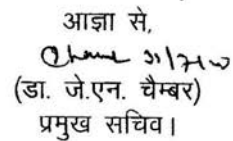 आज्ञा से,
(डा. जे.एन. चैम्बर)
प्रमुख सचिव।